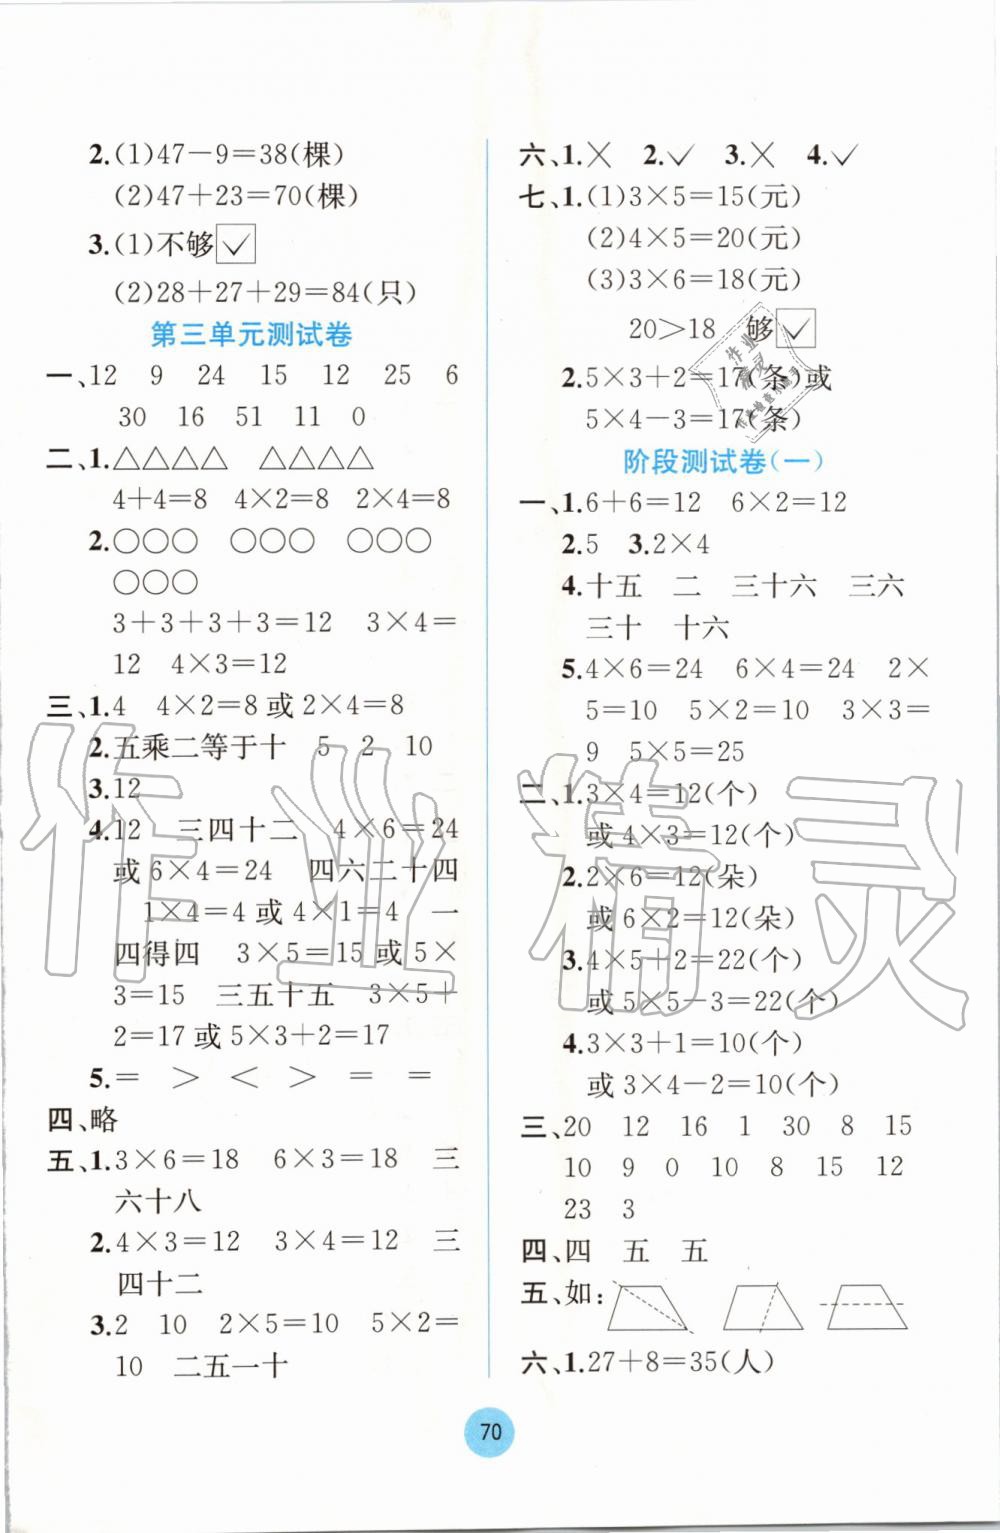 2.(1)47－9＝38(棵)
(2)47＋23＝70(棵)
3.(1)不够✓
(2)28＋27＋29＝84(只)
第三单元测试卷
一、12 9 24 15 12 25 6
30 16 51 11 0
二、1.△△△△ △△△△
4＋4＝8 4×2＝8 2×4＝8
2.○○○ ○○○ ○○○
○○○
3＋3＋3＋3＝12 3×4＝
12 4×3＝12
三、1.4 4×2＝8或2×4＝8
2.五乘二等于十 5 2 10
3.12
4.12 三四十二 4×6＝24
或6×4＝24 四六二十四
1×4＝4或4×1＝4 一
四得四 3×5＝15或5×
3＝15 三五十五 3×5＋
2＝17或5×3＋2＝17
5.＝ ＞ ＜ ＞ ＝ ＝
四、略
五、1.3×6＝18 6×3＝18 三
六十八
2.4×3＝12 3×4＝12 三
四十二
3.2 10 2×5＝10 5×2＝
10 二五一十
六、1.╳ 2.✓ 3.╳ 4.✓
七、1.(1)3×5＝15(元)
(2)4×5＝20(元)
(3)3×6＝18(元)
20＞18 够✓
2.5×3＋2＝17(条)或
5×4－3＝17(条)
阶段测试卷(一)
一、1.6＋6＝12 6×2＝12
2.5 3.2×4
4.十五 二 三十六 三六
三十 十六
5.4×6＝24 6×4＝24 2×
5＝10 5×2＝10 3×3＝
9 5×5＝25
二、1.3×4＝12(个)
或4×3＝12(个)
2.2×6＝12(朵)
或6×2＝12(朵)
3.4×5＋2＝22(个)
或5×5－3＝22(个)
4.3×3＋1＝10(个)
或3×4－2＝10(个)
三、20 12 16 1 30 8 15
10 9 0 10 8 15 12
23 3
四、四 五 五
五、如：
六、1.27＋8＝35(人)
70
作业精灵